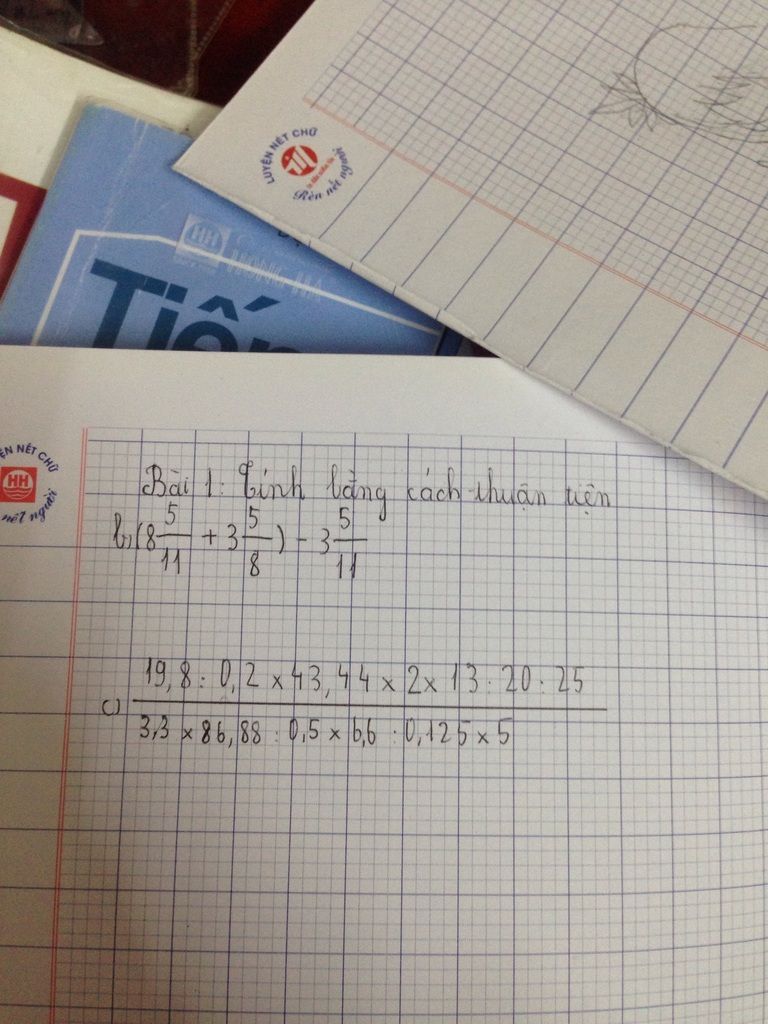 LUYỆN NÉT CHỮ
Rèn nết người
HH
HỒNG HÀ
Tiến
ỆN NÉT CHỮ
HH
nết người
Bài 1: Tính bằng cách thuận tiện
b, (8 5/11 + 3 5/8) - 3 5/11
c) 19,8 : 0,2 x 43,44 x 2 x 13 : 20 : 25
3,3 x 86,88 : 0,5 x 6,6 : 0,125 x 5